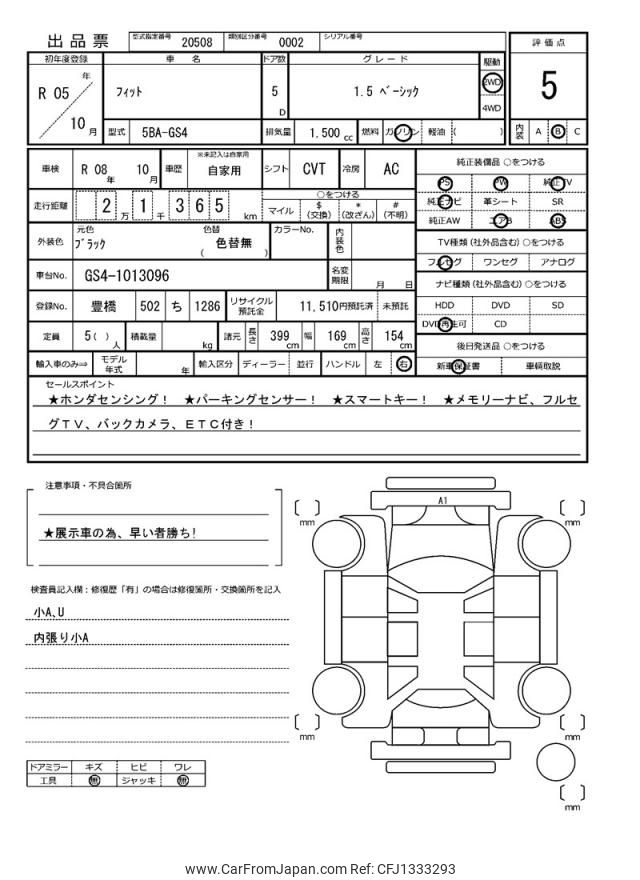 出品票
型式指定番号 20508 類別区分番号 0002 シリアル番号
評価点
5
内装 A B C
初年度登録 車名 ドア数 グレード 駆動
R 05 年 10 月
フィット
5 D
1.5 ベーシック
2WD
4WD
型式 5BA-GS4 排気量 1.500 cc 燃料 ガソリン 軽油 ( )
車検 R 08 年 10 月 車歴 ※未記入は自家用 自家用 シフト CVT 冷房 AC
走行距離 2 万 1 千 3 6 5 km
○をつける
マイル $ (交換) * (改ざん) # (不明)
外装色 元色 ブラック 色替 ( 色替無 ) カラーNo. 内装色
車台No. GS4-1013096 名変期限 月 日
登録No. 豊橋 502 ち 1286 リサイクル預託金 11,510円預託済 未預託
定員 5( ) 人 積載量 kg 諸元 長さ 399 cm 幅 169 cm 高さ 154 cm
輸入車のみ⇒ モデル年式 年 輸入区分 ディーラー 並行 ハンドル 左 右
純正装備品 ○をつける
PS PW 純正TV
純正ナビ 革シート SR
純正AW エアB ABS
TV種類(社外品含む) ○をつける
フルセグ ワンセグ アナログ
ナビ種類(社外品含む) ○をつける
HDD DVD SD
DVD再生可 CD
後日発送品 ○をつける
新車保証書 車輌取説
セールスポイント
★ホンダセンシング! ★パーキングセンサー! ★スマートキー! ★メモリーナビ、フルセ
グTV、バックカメラ、ETC付き!
注意事項・不具合箇所
★展示車の為、早い者勝ち!
検査員記入欄:修復歴「有」の場合は修復箇所・交換箇所を記入
小A､U
内張り小A
ドアミラー キズ ヒビ ワレ
工具 無 ジャッキ 無
A1
[ ] mm
[ ] mm
[ ] mm
[ ] mm
[ ] mm
www.CarFromJapan.com Ref: CFJ1333293